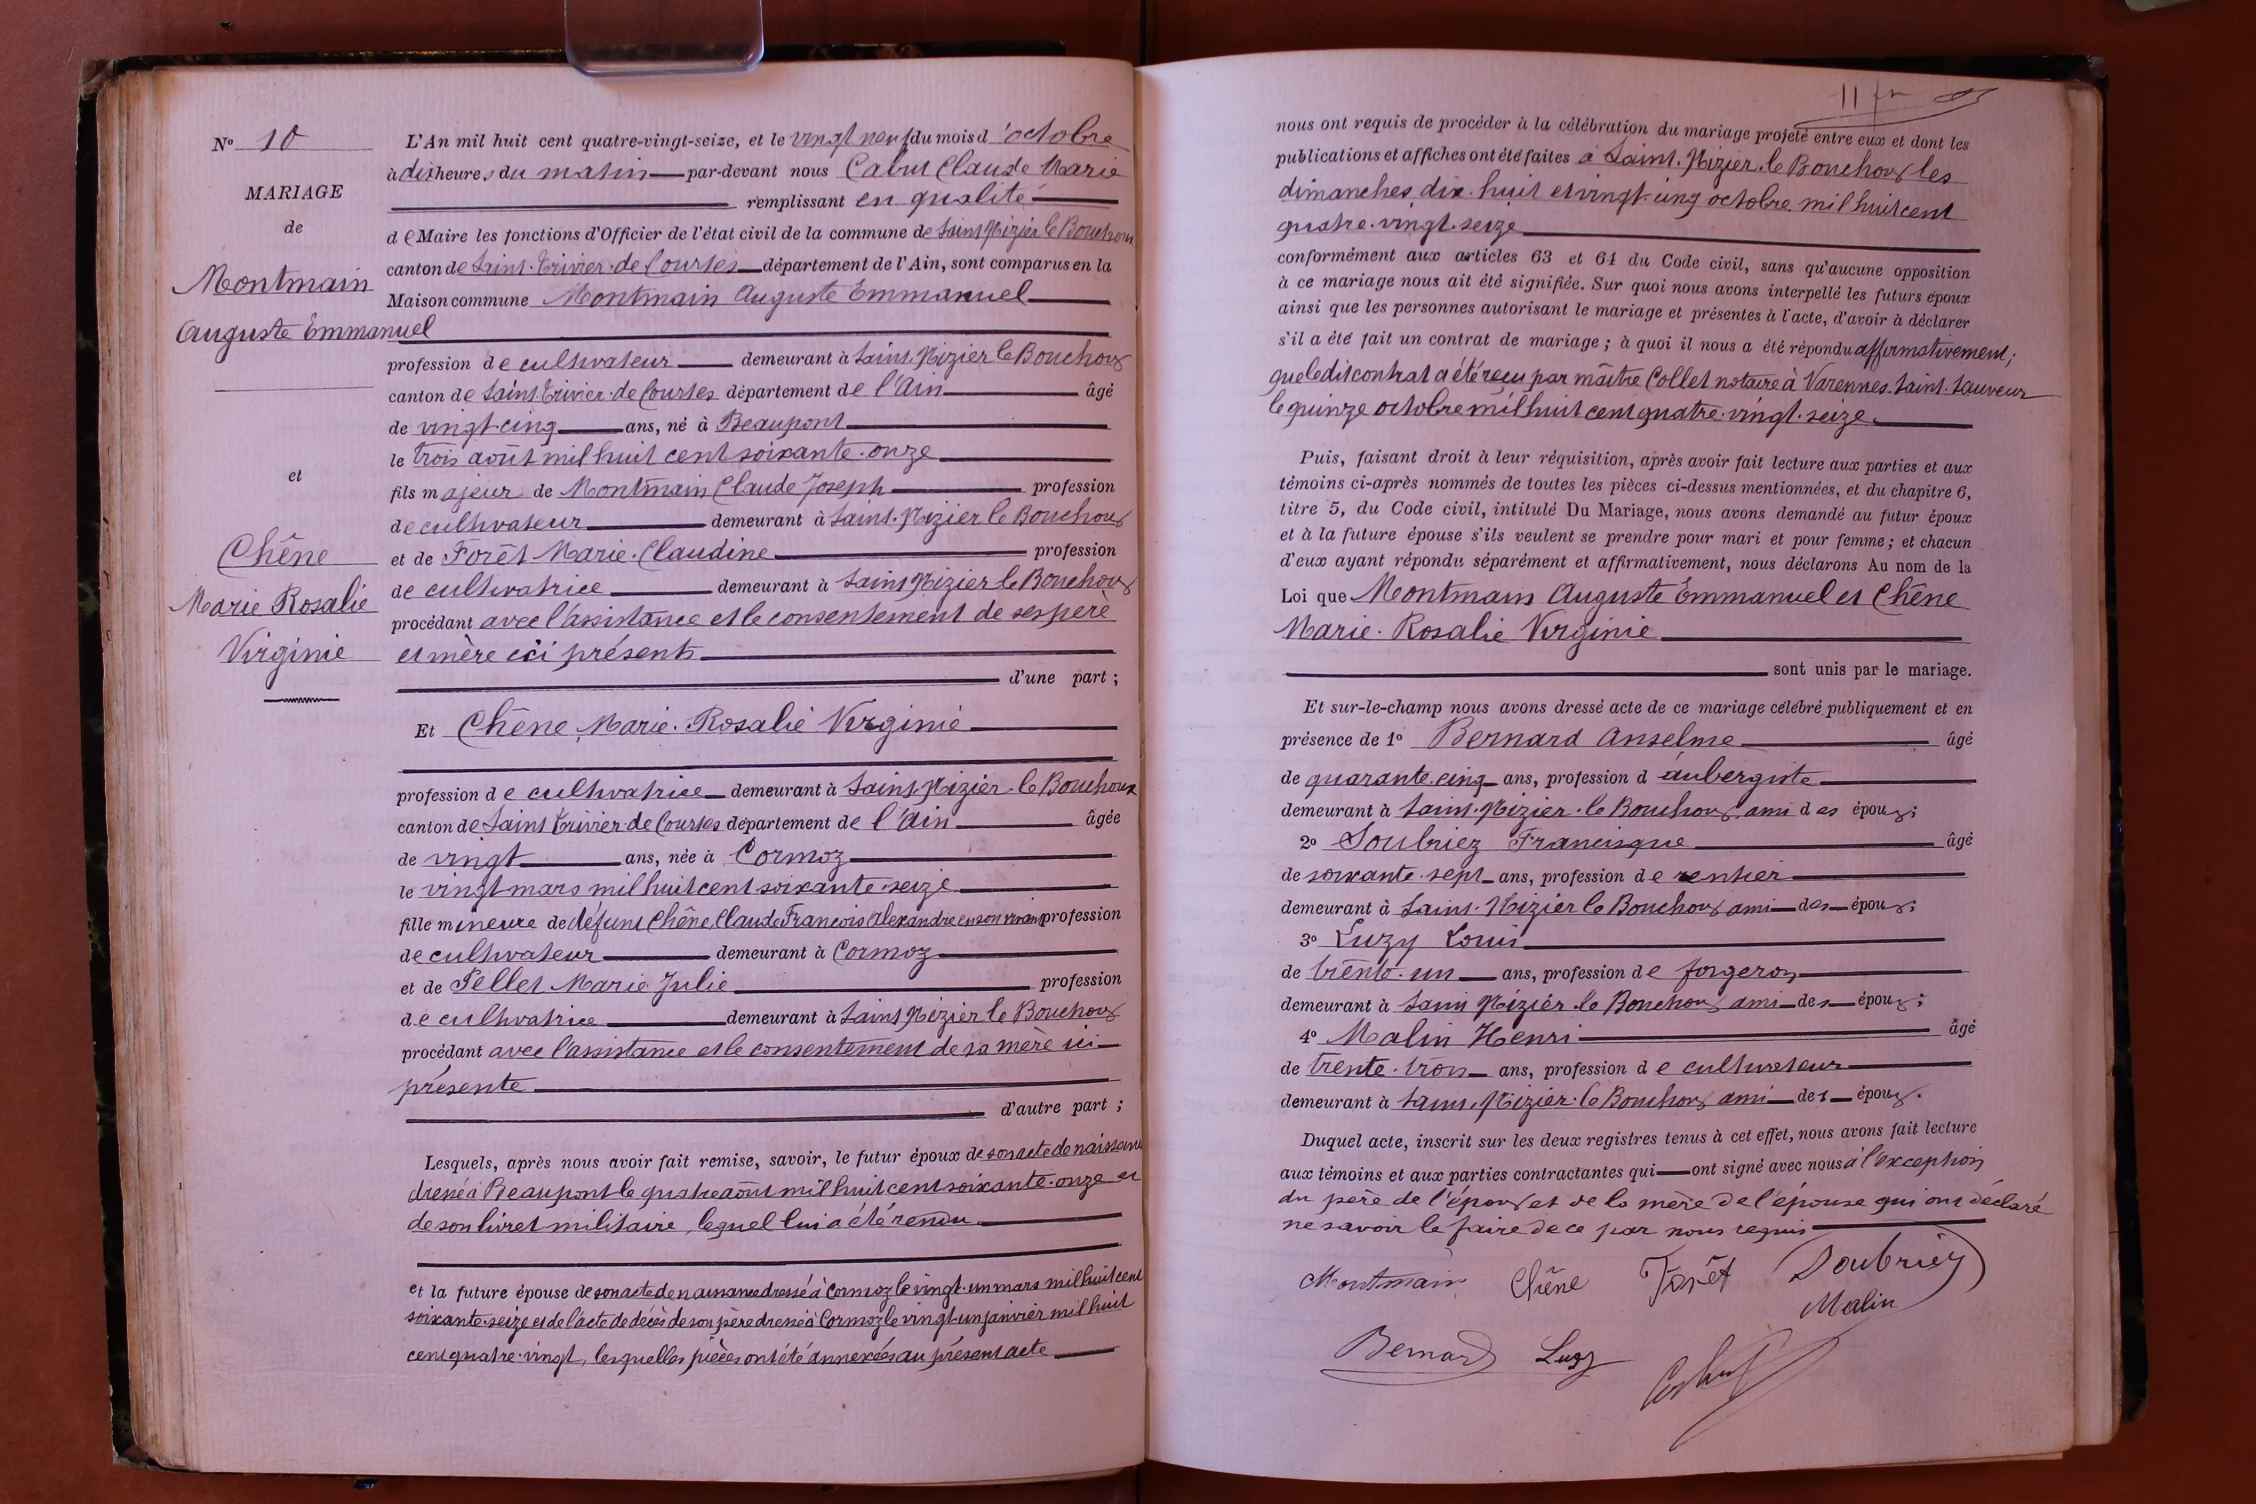 N° 10
MARIAGE
de
Montmain
Auguste Emmanuel
et
Chêne
Marie Rosalie
Virginie
L'An mil huit cent quatre-vingt-seize, et le vingt neuf du mois d'octobre
à dix heures du matin par-devant nous Cabut Claude Marie
remplissant en qualité
de Maire les fonctions d'Officier de l'état civil de la commune de Saint Nizier le Bouchoux
canton de Saint-Trivier-de Courtes département de l'Ain, sont comparus en la
Maison commune Montmain Auguste Emmanuel
profession de cultivateur demeurant à Saint-Nizier le Bouchoux
canton de Saint Trivier-de Courtes département de l'Ain âgé
de vingt-cinq ans, né à Beaupont
le trois août mil huit cent soixante-onze
fils majeur de Montmain Claude Joseph profession
de cultivateur demeurant à Saint-Nizier le Bouchoux
et de Forêt Marie-Claudine profession
de cultivatrice demeurant à Saint Nizier le Bouchoux
procédant avec l'assistance et le consentement de ses père
et mère ici présents
d'une part ;
Et Chêne Marie-Rosalie Virginie
profession de cultivatrice demeurant à Saint-Nizier-le Bouchoux
canton de Saint Trivier-de Courtes département de l'Ain âgée
de vingt ans, née à Cormoz
le vingt mars mil huit cent soixante-seize
fille mineure de défunt Chêne Claude François Alexandre en son vivant profession
de cultivateur demeurant à Cormoz
et de Pellet Marie Julie profession
de cultivatrice demeurant à Saint Nizier le Bouchoux
procédant avec l'assistance et le consentement de sa mère ici
présente
d'autre part ;
Lesquels, après nous avoir fait remise, savoir, le futur époux de son acte de naissance
dressé à Beaupont le quatre août mil huit cent soixante-onze et
de son livret militaire, lequel lui a été rendu
et la future épouse de son acte de naissance dressé à Cormoz le vingt-un mars mil huit cent
soixante-seize et de l'acte de décès de son père dressé à Cormoz le vingt-un janvier mil huit
cent quatre-vingt, lesquelles pièces ont été annexées au présent acte
11
nous ont requis de procéder à la célébration du mariage projeté entre eux et dont les
publications et affiches ont été faites à Saint-Nizier-le Bouchoux les
dimanches dix-huit et vingt-cinq octobre mil huit cent
quatre-vingt-seize
conformément aux articles 63 et 64 du Code civil, sans qu'aucune opposition
à ce mariage nous ait été signifiée. Sur quoi nous avons interpellé les futurs époux
ainsi que les personnes autorisant le mariage et présentes à l'acte, d'avoir à déclarer
s'il a été fait un contrat de mariage ; à quoi il nous a été répondu affirmativement;
que ledit contrat a été reçu par maître Collet notaire à Varennes-Saint-Sauveur
le quinze octobre mil huit cent quatre-vingt-seize.
Puis, faisant droit à leur réquisition, après avoir fait lecture aux parties et aux
témoins ci-après nommés de toutes les pièces ci-dessus mentionnées, et du chapitre 6,
titre 5, du Code civil, intitulé Du Mariage, nous avons demandé au futur époux
et à la future épouse s'ils veulent se prendre pour mari et pour femme ; et chacun
d'eux ayant répondu séparément et affirmativement, nous déclarons Au nom de la
Loi que Montmain Auguste Emmanuel et Chêne
Marie-Rosalie Virginie
sont unis par le mariage.
Et sur-le-champ nous avons dressé acte de ce mariage célébré publiquement et en
présence de 1° Bernard Anselme âgé
de quarante-cinq ans, profession d'aubergiste
demeurant à Saint-Nizier-le Bouchoux ami des époux;
2° Doubriez Francisque âgé
de soixante-sept ans, profession de rentier
demeurant à Saint-Nizier le Bouchoux ami des époux;
3° Luzy Louis
de trente-un ans, profession de forgeron
demeurant à Saint Nizier-le Bouchoux ami des époux;
4° Malin Henri âgé
de trente-trois ans, profession de cultivateur
demeurant à Saint-Nizier-le Bouchoux ami des époux.
Duquel acte, inscrit sur les deux registres tenus à cet effet, nous avons fait lecture
aux témoins et aux parties contractantes qui ont signé avec nous à l'exception
du père de l'époux et de la mère de l'épouse qui ont déclaré
ne savoir le faire de ce par nous requis
Montmain Chêne Forêt Doubriez
Malin
Bernard Luzy Cabut